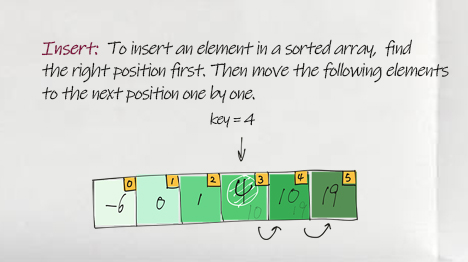 Insert: To insert an element in a sorted array, find
the right position first. Then move the following elements
to the next position one by one.
key = 4
0 1 2 3 4 5
-6 0 1 4 10 19
10 19